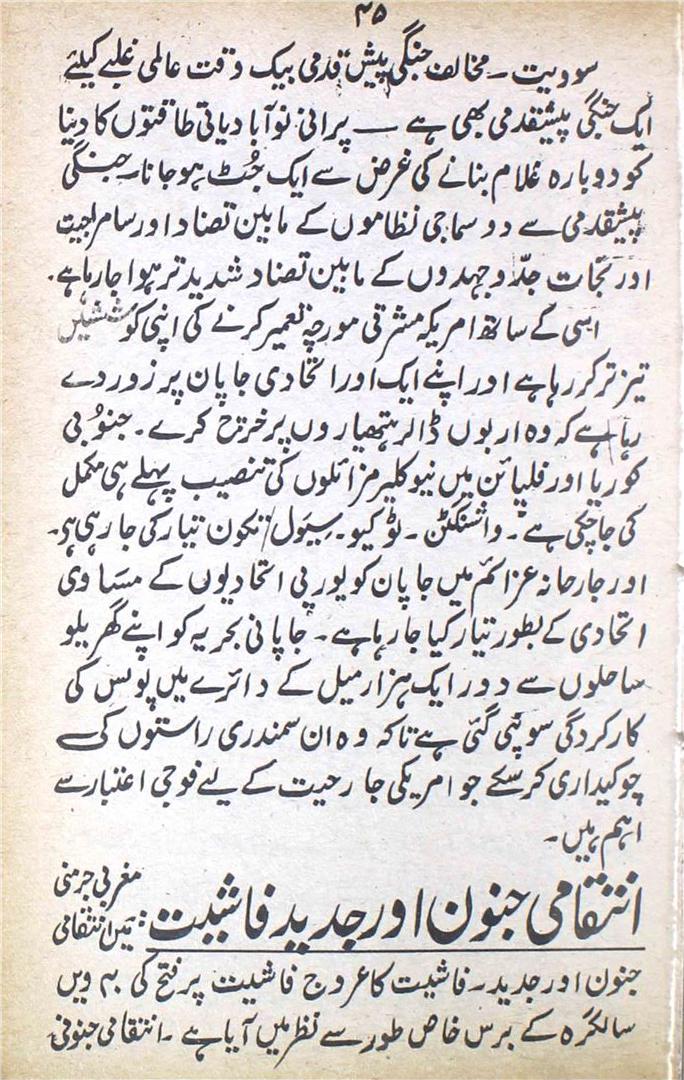 ۳۵
سوویت ۔ مخالف جنگی پیش قدمی بیک وقت عالمی غلبے کیلئے
ایک جنگی پیشقدمی بھی ہے — پرانی نوآبادیاتی طاقتوں کا دینا
کو دوبارہ غلام بنانے کی غرض سے ایک جُٹ ہو جانا۔ جنگی
پیشقدمی سے دو سماجی نظاموں کے مابین تضاد اور سامراجیت
اور نجات جدّ وجہدوں کے مابین تضاد شدید تر ہوا جا رہا ہے۔
اسی کے ساتھ امریکہ مشرقی مورچہ تعمیر کرنے کی اپنی کوششیں
تیز تر کر رہا ہے اور اپنے ایک اور اتحادی جاپان پر زور دے
رہا ہے کہ وہ اربوں ڈالر ہتھیاروں پر خرچ کرے۔ جنوُبی
کوریا اور فلپائن میں نیوکلیر مزائلوں کی تنصیب پہلے ہی مکمل
کی جا چکی ہے۔ واشنگٹن ۔ ٹوکیو ۔ سیول تکون تیار کی جا رہی ہے۔
اور جارحانہ عزائم میں جاپان کو یورپی اتحادیوں کے مساوی
اتحادی کے بطور تیار کیا جا رہا ہے۔ جاپانی بحریہ کو اپنے گھریلو
ساحلوں سے دور ایک ہزار میل کے دائرے میں پولس کی
کارکردگی سونپی گئی ہے تاکہ وہ ان سمندری راستوں کی
چوکیداری کر سکے جو امریکی جارحیت کے لیے فوجی اعتبار سے
اہم ہیں۔
انتقامی جنون اور جدید فاشیت : مغربی جرمنی
میں انتقامی
جنون اور جدید۔ فاشیت کا عروج فاشیت پر فتح کی ۴۰ ویں
سالگرہ کے برس خاص طور سے نظر میں آیا ہے۔ انتقامی جنونی